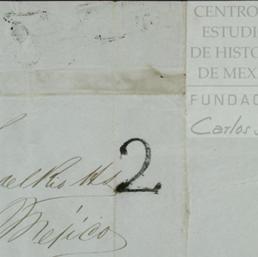 CENTRO
ESTUDI
DE HISTO
DE MEX
FUNDAC
Carlos S
2
del Rio Hs
Méjico